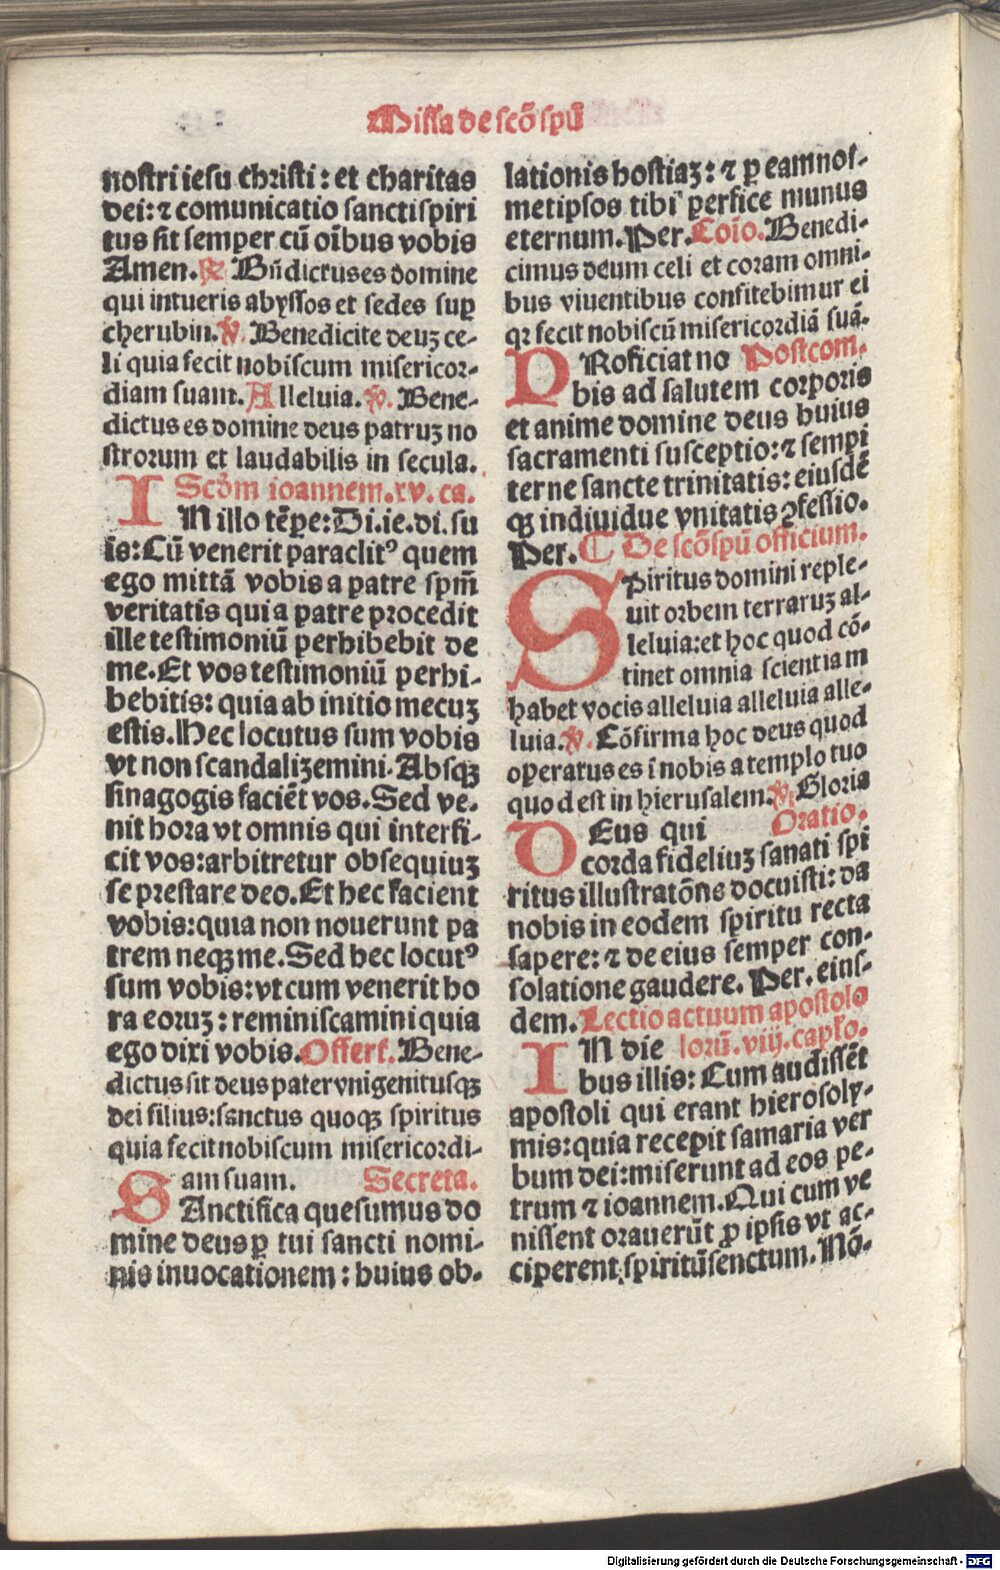 Missa de scō spū
nostri iesu christi : et charitas
dei: ⁊ comunicatio sancti spiri
tus sit semper cū oībus vobis
Amen. ℟ Bn̄dictus es domine
qui intueris abyssos et sedes suꝑ
cherubin. ℣. Benedicite deuꝫ ce-
li quia fecit nobiscum misericor-
diam suam. Alleluia. ℣. Bene-
dictus es domine deus patruꝫ no
strorum et laudabilis in secula.
Scd̄m ioannem. xv. ca.
IN illo tēpe: Di. ie. di. su
is: Cū venerit paraclitꝰ quem
ego mittā vobis a patre spm̄
veritatis qui a patre procedit
ille testimoniū perhibebit de
me. Et vos testimoniū perhi-
bebitis: quia ab initio mecuꝫ
estis. Hec locutus sum vobis
vt non scandalizemini. Absqꝫ
sinagogis faciēt vos. Sed ve-
nit hora vt omnis qui interfi-
cit vos: arbitretur obsequiuꝫ
se prestare deo. Et hec facient
vobis: quia non nouerunt pa
trem neqꝫ me. Sed hec locutꝰ
sum vobis: vt cum venerit ho
ra eoruꝫ : reminiscamini quia
ego dixi vobis. Offert. Bene-
dictus sit deus pater vnigenitusqꝫ
dei filius: sanctus quoqꝫ spiritus
quia fecit nobiscum misericordi-
am suam. Secreta.
SAnctifica quesumus do
mine deus ꝑ tui sancti nomi-
nis inuocationem : huius ob-
lationis hostiaꝫ: ⁊ ꝑ eam nos-
metipsos tibi perfice munus
eternum. Per. Coīo. Benedi-
cimus deum celi et coram omni-
bus viuentibus confitebimur ei
qꝛ fecit nobiscū misericordiā suā.
PRoficiat no Postcom.
bis ad salutem corporis
et anime domine deus huius
sacramenti susceptio: ⁊ sempi
terne sancte trinitatis: eiusdē
qꝫ indiuidue vnitatis ꝯfessio.
Per. ¶ De scō spū officium.
SPiritus domini reple-
uit orbem terraruꝫ al-
leluia: et hoc quod cō-
tinet omnia scientiam
habet vocis alleluia alleluia alle-
luia. ℣. Cōfirma hoc deus quod
operatus es ī nobis a templo tuo
quod est in hierusalem. ℣. Gloria
DEus qui Oratio.
corda fideliuꝫ sancti spi
ritus illustratōne docuisti: da
nobis in eodem spiritu recta
sapere: ⁊ de eius semper con-
solatione gaudere. Per. eius-
dem. Lectio actuum apostolo
IN die lorū. viij. capło.
bus illis: Cum audissēt
apostoli qui erant hierosoly-
mis: quia recepit samaria ver
bum dei: miserunt ad eos pe-
trum ⁊ ioannem. Qui cum ve
nissent orauerūt ꝓ ipsis vt ac-
ciperent spiritū senctum. Nō-
Digitalisierung gefördert durch die Deutsche Forschungsgemeinschaft - DFG